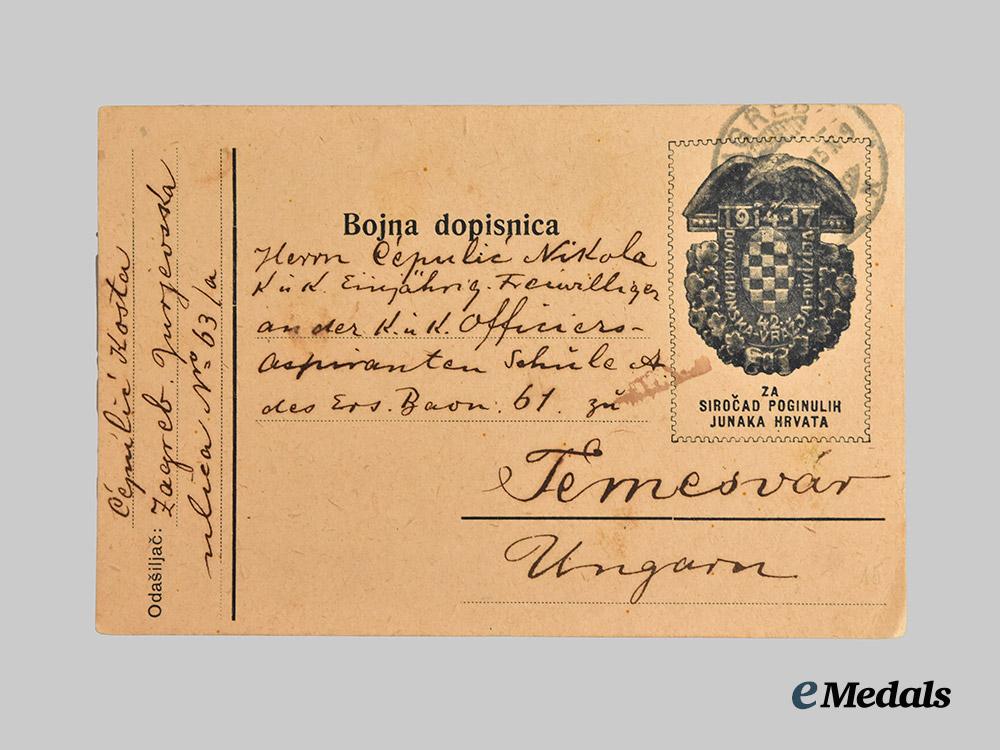 Bojna dopisnica
Herrn Čepulić Nikola
K. u K. Einjährig-Freiwilliger
an der K. u K. Officiers-
aspiranten Schule A
des Ers. Baon. 61. zu
Temesvár
Ungarn
Odašiljač: Čepulić Kosta
Zagreb. Jurjevska
ulica No 63/a
1914-17
DOMOBRANSKA DIVIZIJA
42. VRAŽJA
ZA
SIROČAD POGINULIH
JUNAKA HRVATA
ZAGREB
eMedals